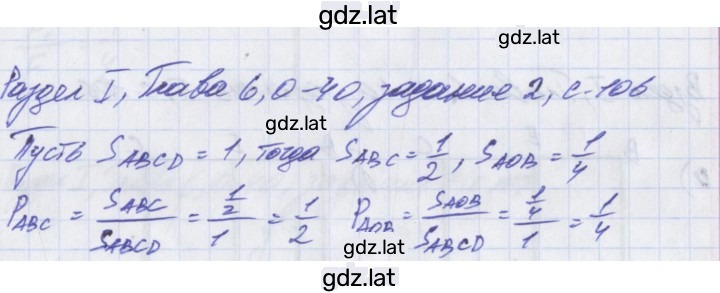 gdz.lat
Раздел I, Глава 6, О-40, задание 2, с-106
Пусть S_ABCD = 1, тогда S_ABC = 1/2, S_AOB = 1/4
P_ABC = S_ABC/S_ABCD = (1/2)/1 = 1/2 P_AOB = S_AOB/S_ABCD = (1/4)/1 = 1/4
gdz.lat
gdz.lat
gdz.lat